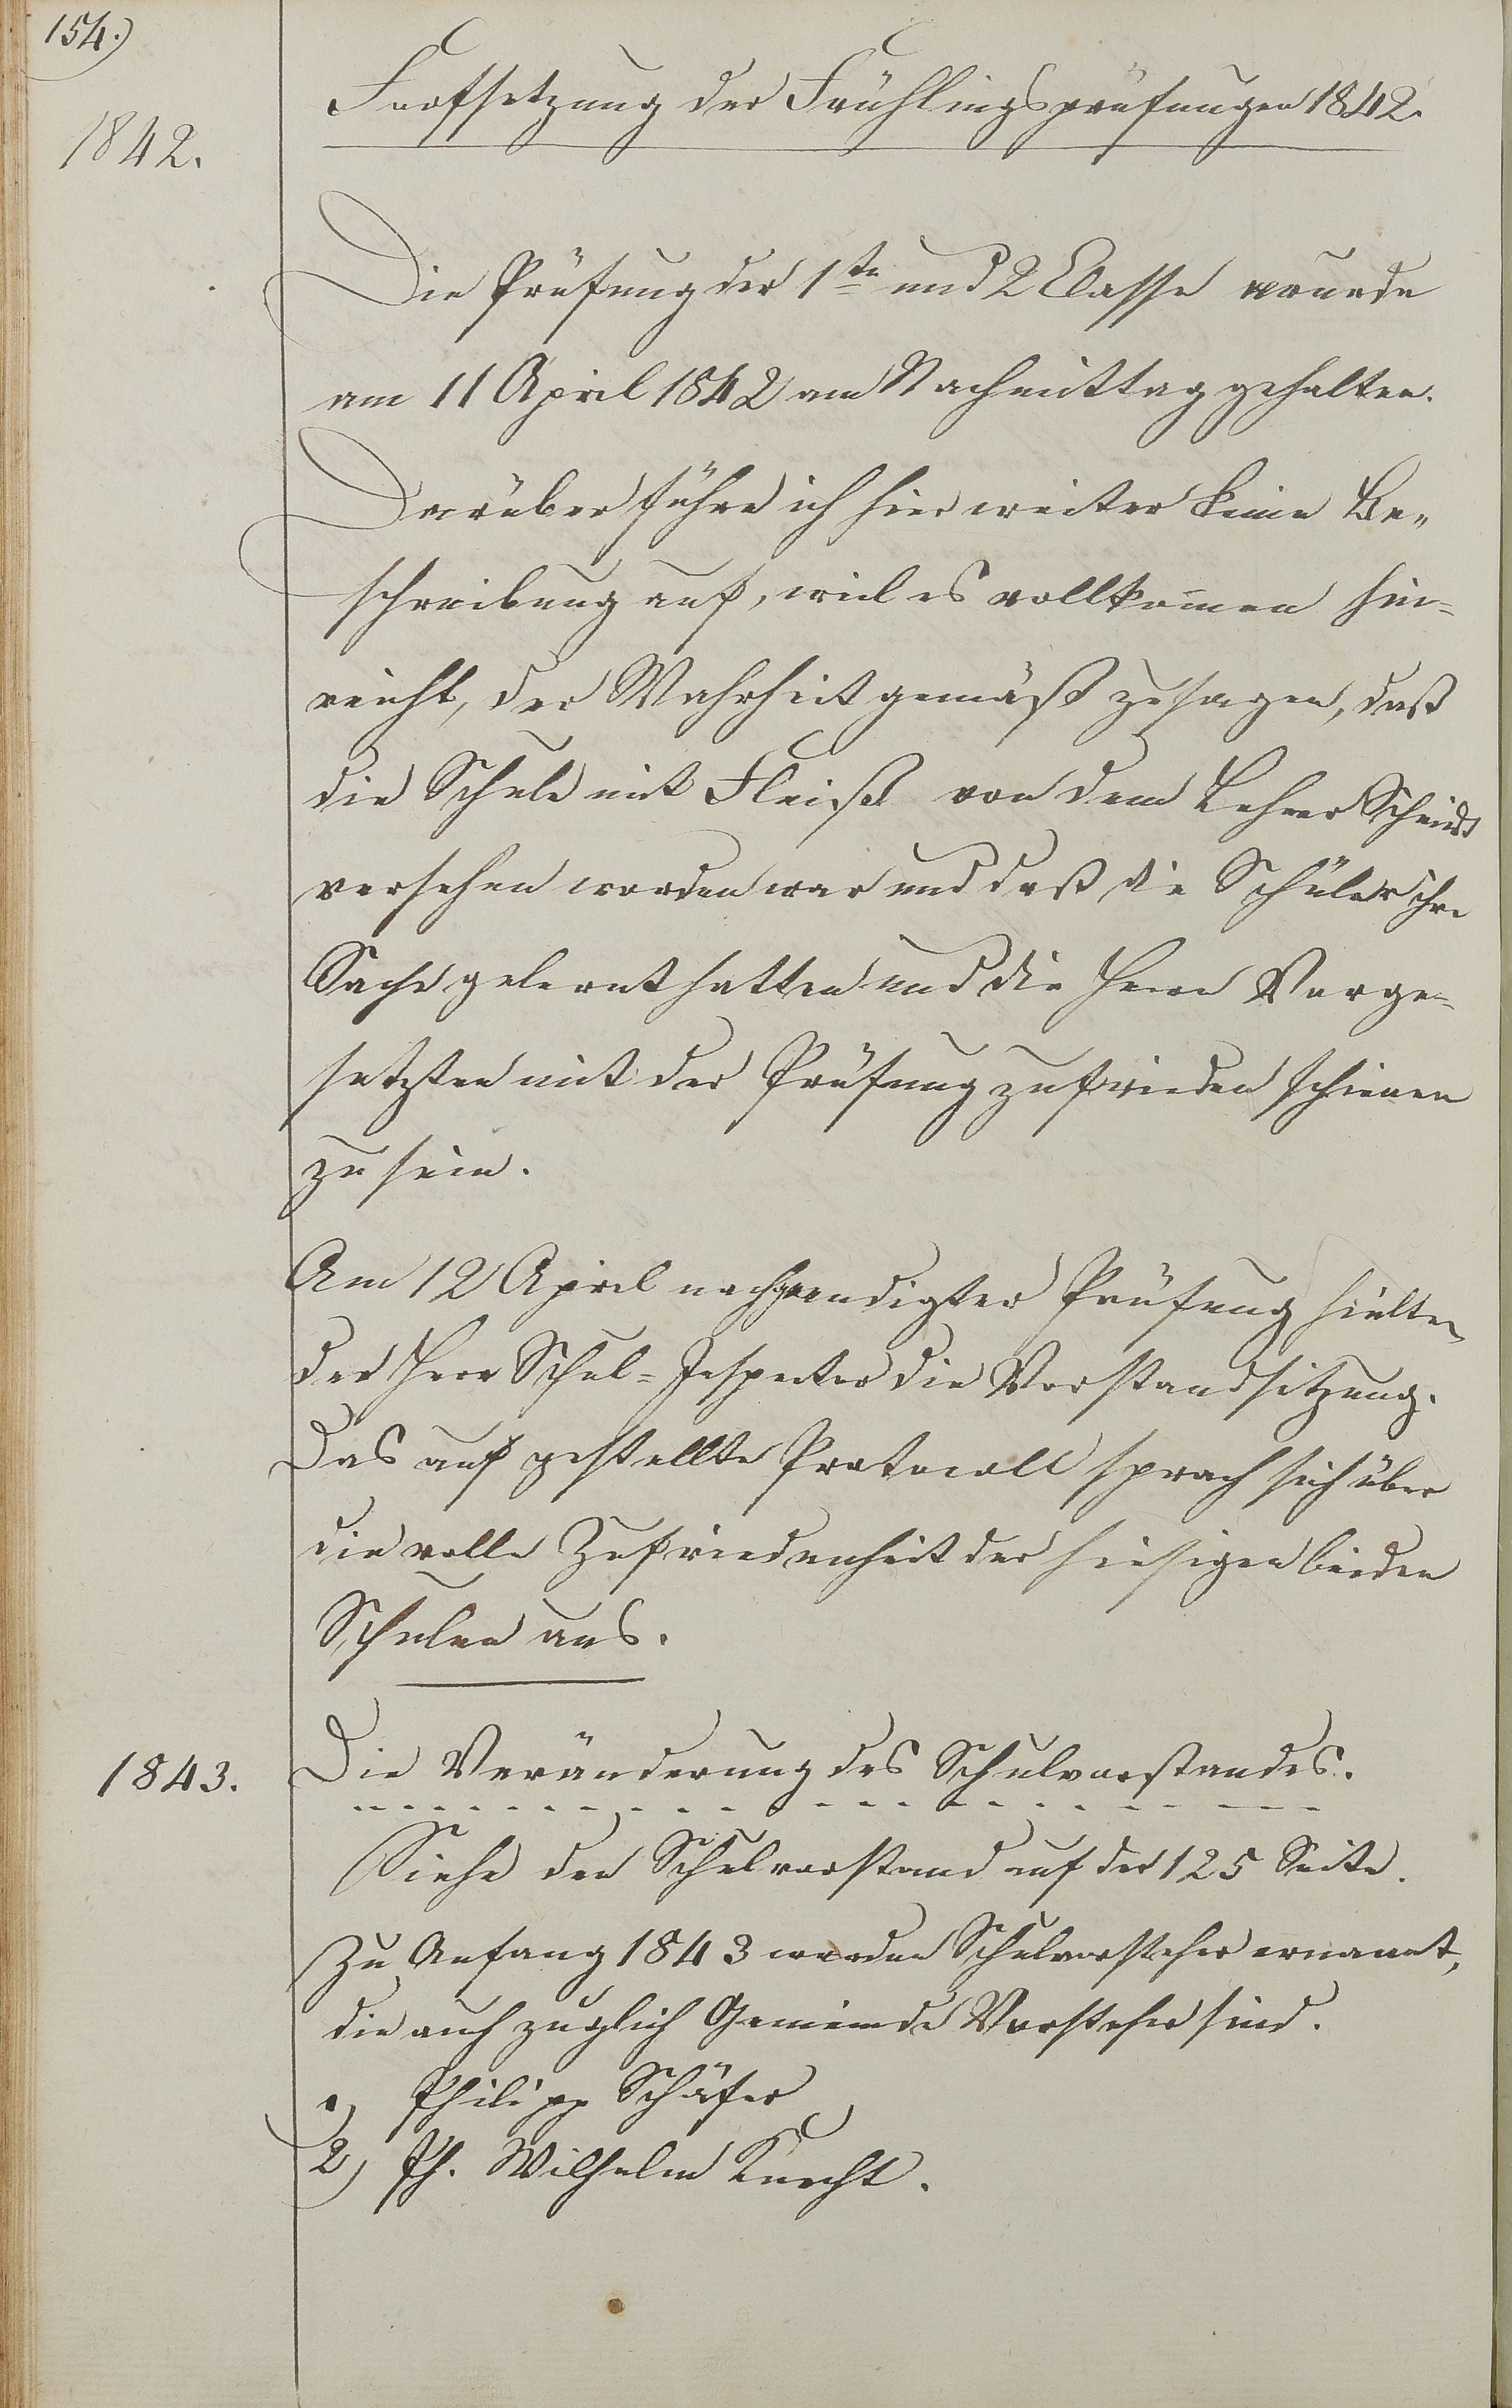 154.)
1842.
Fortsetzung der Frühlingsprüfungen 1842.
Die Prüfung der 1te und 2 Classe wurde
am 11 April 1842 am Nachmittag gehalten.
Darüber führe ich hier weiter keine Be„
schreibung auf, weil es vollkomen hin=
reicht, der Wahrheit gemäß zu sagen, daß
die Schule mit Fleiß von dem Lehrer Schmidt
versehen worden war und daß die Schüler ihre
Sache gelernt hatten und die Herrn Vorge=
setzten mit der Prüfung zufrieden schienen
zu sein.
Am 12 April nach geendigter Prüfung hielten
der Herr Schul=Inspector die Vorstandsitzung.
Das auf gestellte Protocoll sprach sich über
die volle Zufriedenheit der hiesigen beiden
Schulen aus.
1843.
Die Veränderung des Schulvorstandes.
Siehe den Schulvorstand auf der 125 Seite.
Zu Anfang 1843 wurden Schulvorsteher ernannt,
die auch zuglich Gemeinde Vorsteher sind.
1) Philipp Schäfer
2) Ph. Wilhelm Knecht.